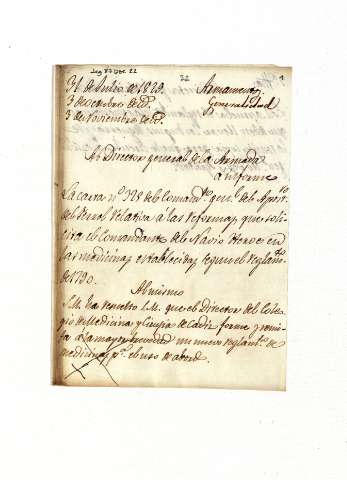 Leg 87 Doc 22
22
1
31 de Julio de 1829.
Armamentos
3 diciembre de id.
Generalidad
3 de Noviembre de id.
Al Director general de la Armada
a informe
La carta nº 328 del Comand.te gen.l del Apost.o
del Ferrol relativa a las reformas que soli-
cita el Comandante del Navio Heroe en
las medicinas establecidas segun el reglam.to
de 1790.
Al mismo
S.M. ha resuelto S.M. que el Director del Cole-
gio de Medicina y Cirugia de Cadiz forme y remi-
ta a la mayor brevedad un nuevo reglam.to de
medicinas p.a el uso de abord.